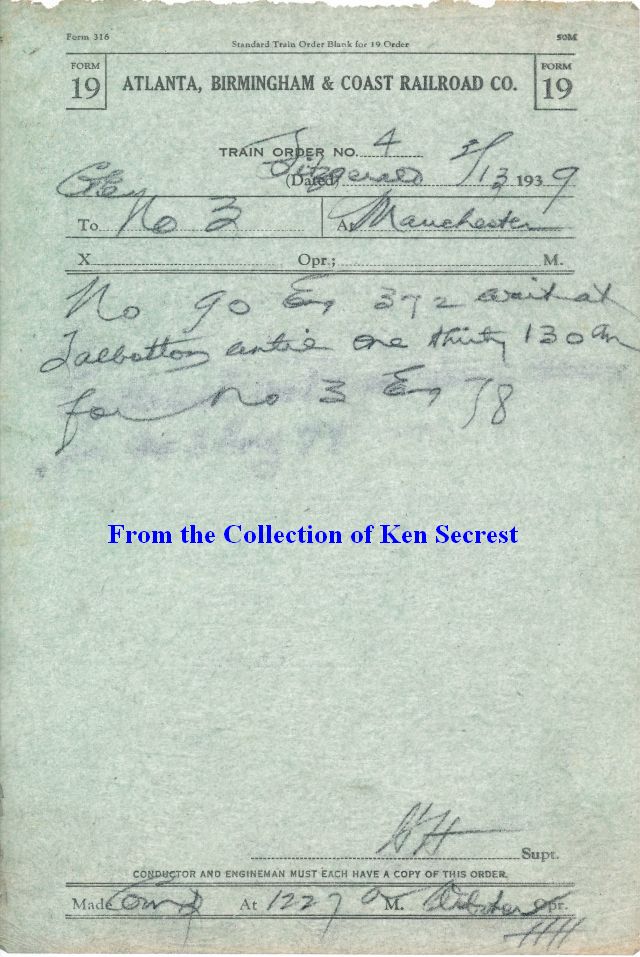 Form 316 50M
Standard Train Order Blank for 19 Order
FORM 19 ATLANTA, BIRMINGHAM & COAST RAILROAD CO. FORM 19
TRAIN ORDER NO. 4
(Dated) Fitzgerald 2/13 1939
To No 3 At Manchester
X Opr.; M.
No 90 Eng 372 wait at
Talbotton until one thirty 130 am
for No 3 Eng 78
From the Collection of Ken Secrest
Supt.
CONDUCTOR AND ENGINEMAN MUST EACH HAVE A COPY OF THIS ORDER.
Made Comp At 1227 a M. Opr.